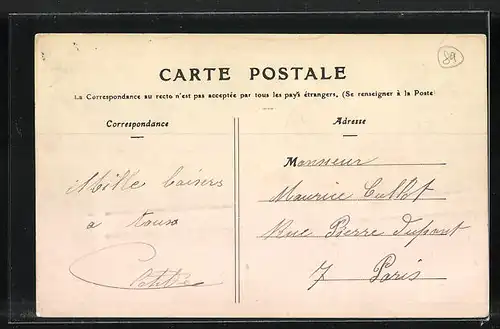 89
CARTE POSTALE
La Correspondance au recto n'est pas acceptée par tous les pays étrangers. (Se renseigner à la Poste)
Correspondance
Adresse
Mille baisers
a tous
Monsieur
Maurice
Rue Pierre Dupont
7 Paris